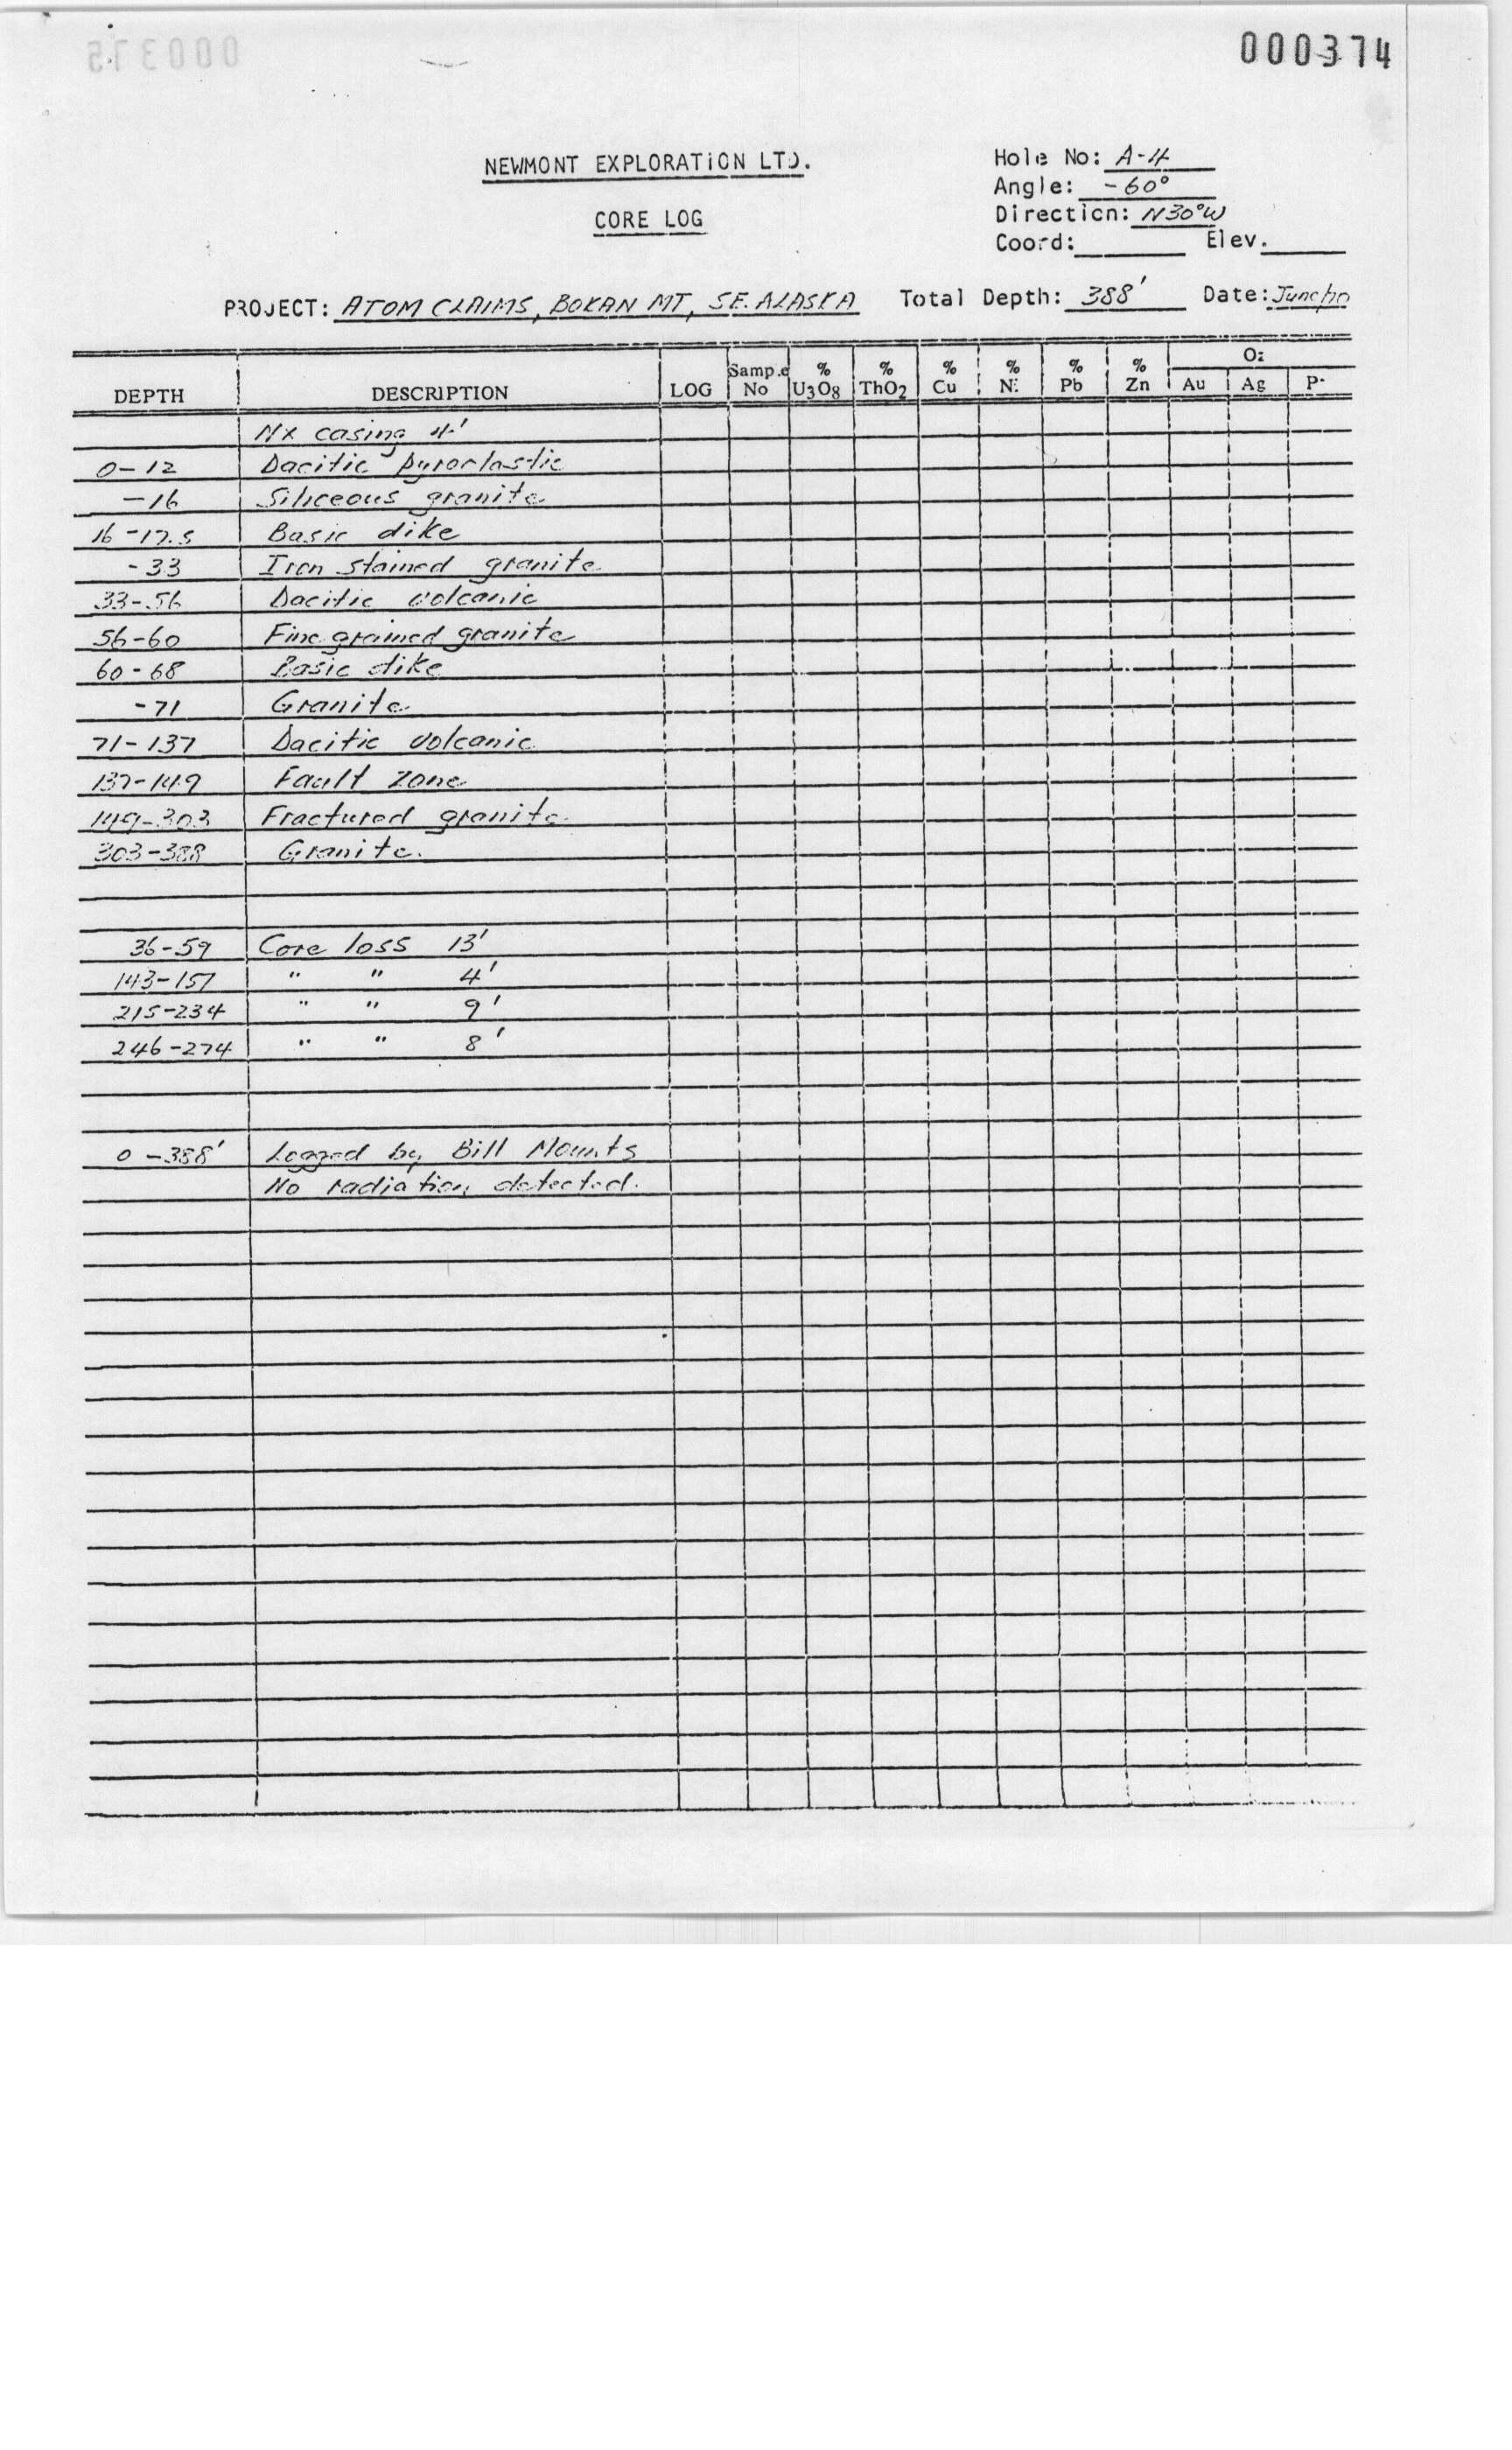 000375
000374
NEWMONT EXPLORATION LTD.
CORE LOG
Hole No: A-4
Angle: -60°
Direction: N30°W
Coord: Elev.
PROJECT: ATOM CLAIMS, BOKAN MT, SE. ALASKA Total Depth: 388' Date:
DEPTH DESCRIPTION LOG Sample No % U3O8 % ThO2 % Cu % Ni % Pb % Zn Oz Au Ag
Nx casing 4'
0-12 Dacitic pyroclastic
-16 Siliceous granite
16-17.5 Basic dike
-33 Iron stained granite
33-56 Dacitic volcanic
56-60 Fine grained granite
60-68 Basic dike
-71 Granite
71-137 Dacitic volcanic
137-149 Fault zone
149-303 Fractured granite
303-388 Granite.
36-59 Core loss 13'
143-157 " " 4'
215-234 " " 9'
246-274 " " 8'
0-388' Logged by Bill Mounts
No radiation detected.